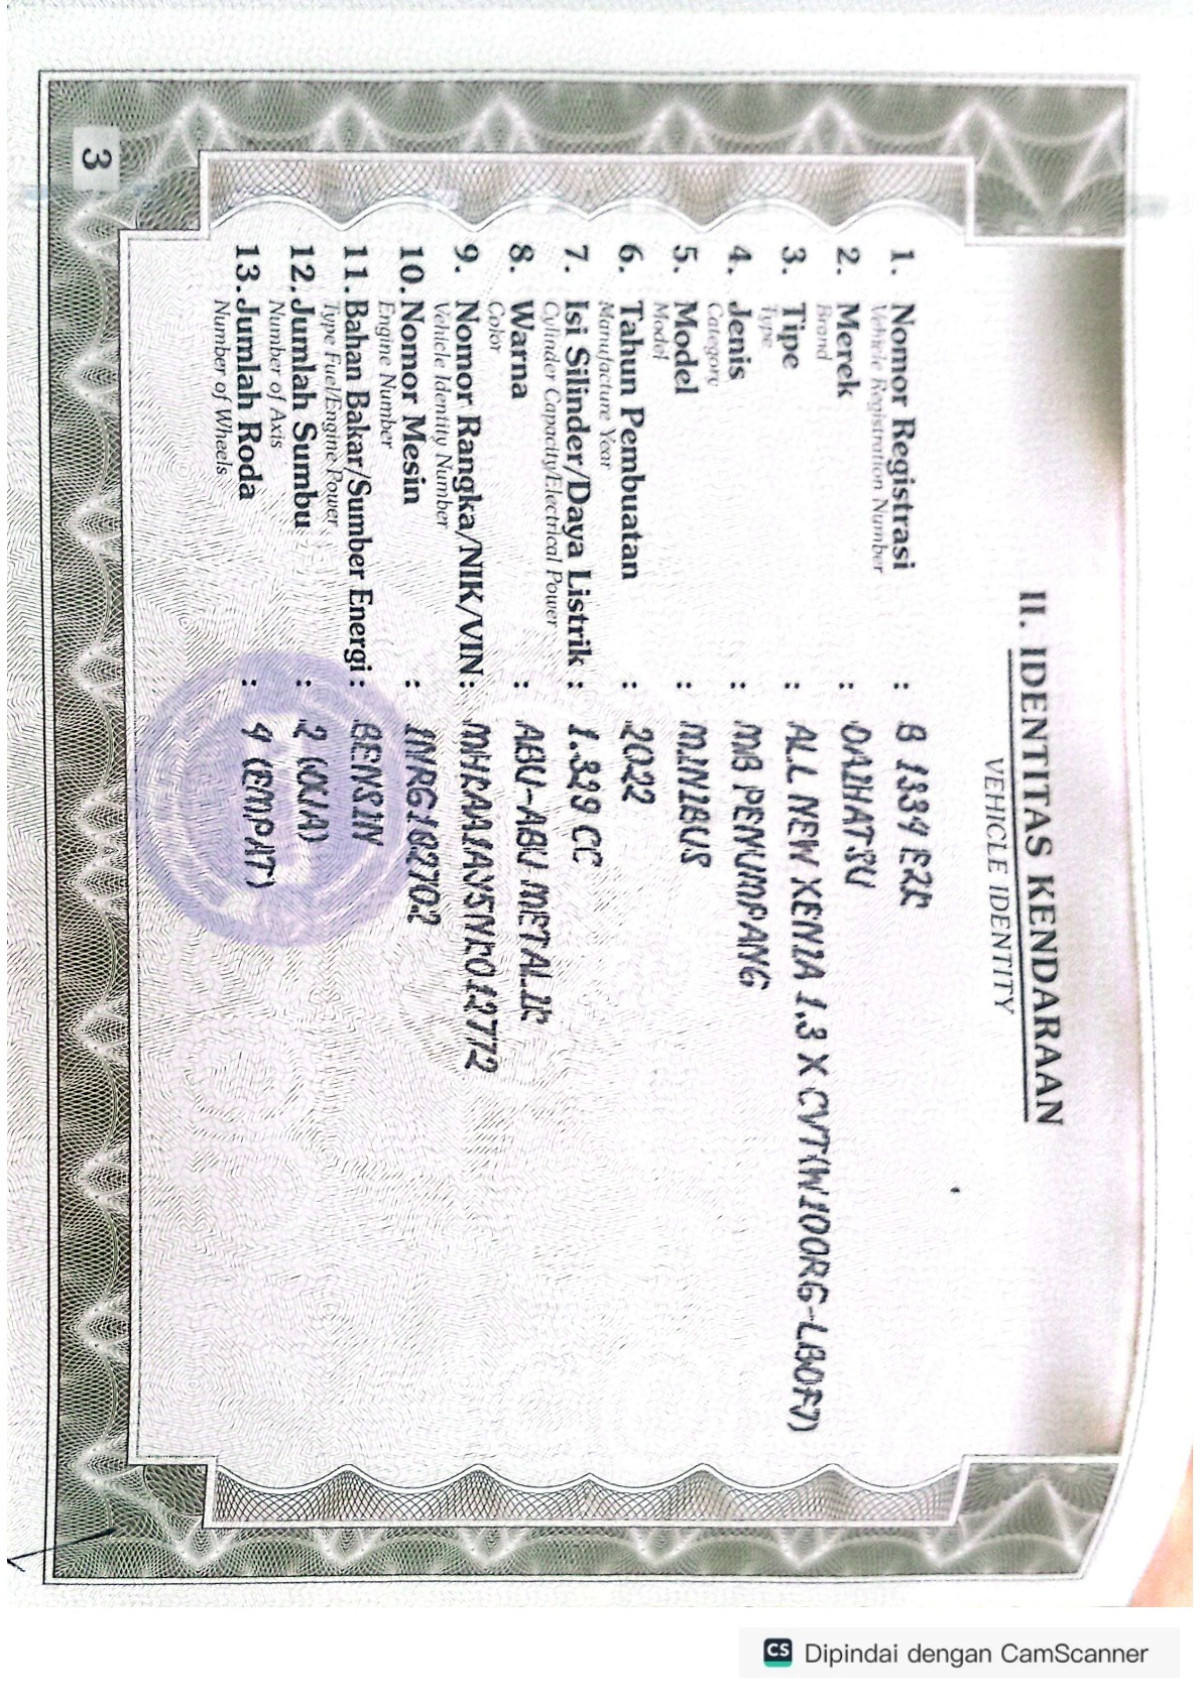 II. IDENTITAS KENDARAAN
VEHICLE IDENTITY
1. Nomor Registrasi : B 1334 EZK
Vehicle Registration Number
2. Merek : DAIHATSU
Brand
3. Tipe : ALL NEW XENIA 1.3 X CVT(W100RG-LBQFJ)
Type
4. Jenis : MB PENUMPANG
Category
5. Model : MINIBUS
Model
6. Tahun Pembuatan : 2022
Manufacture Year
7. Isi Silinder/Daya Listrik : 1.329 CC
Cylinder Capacity/Electrical Power
8. Warna : ABU-ABU METALIK
Color
9. Nomor Rangka/NIK/VIN : MHKAA1AY5NK012772
Vehicle Identity Number
10. Nomor Mesin : 1NRG182702
Engine Number
11. Bahan Bakar/Sumber Energi : BENSIN
Type Fuel/Engine Power
12. Jumlah Sumbu : 2 (DUA)
Number of Axis
13. Jumlah Roda : 4 (EMPAT)
Number of Wheels
3
CS Dipindai dengan CamScanner